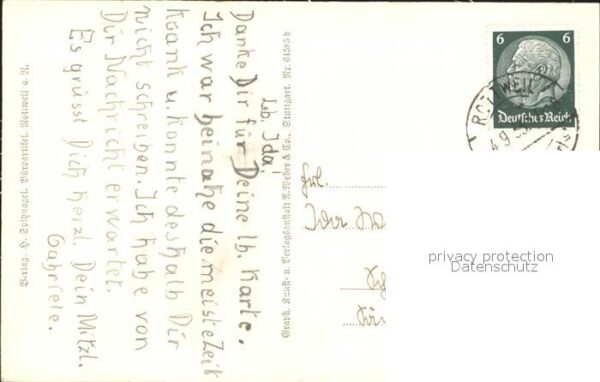 Lb. Ida!
Danke Dir für Deine lb. Karte.
Ich war beinahe die meiste Zeit
krank u. konnte deshalb Dir
nicht schreiben. Ich habe von
Dir Nachricht erwartet.
Es grüsst Dich herzl. Dein Mitzl.
Gabriele.
Verlag: H. Spitznagel, Büroartikel, Rottweil a. N.
Graph. Kunst- u. Verlagsanstalt A. Weber & Co., Stuttgart. Nr. 61585 b
6 6
Deutsches Reich
ROTTWEIL
4.9.
Frl.
Ida
privacy protection
Datenschutz